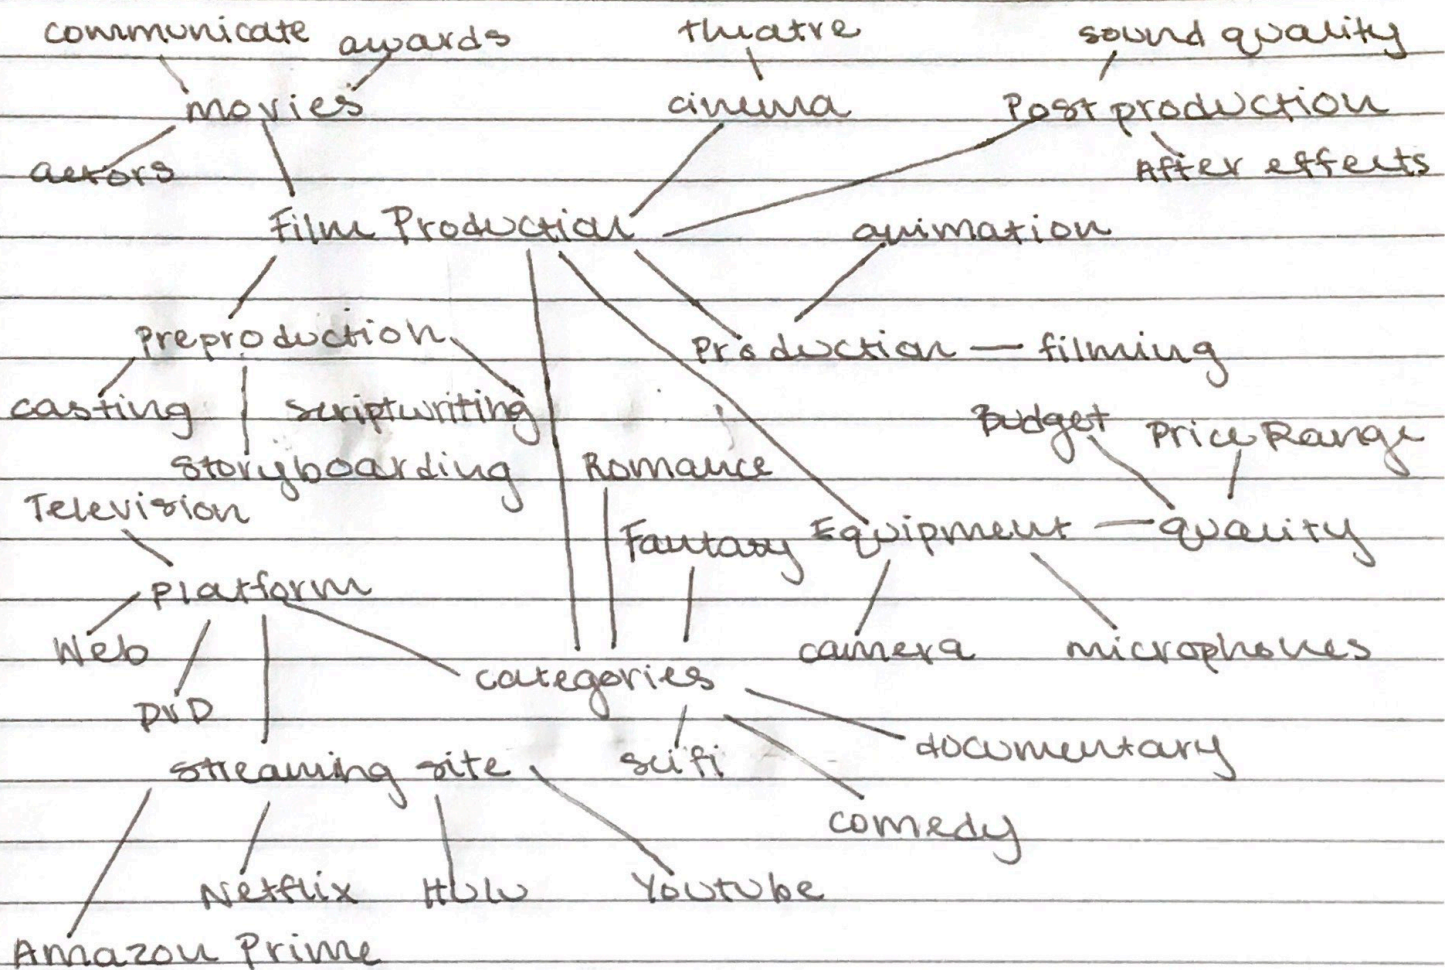 communicate awards theatre sound quality
movies cinema Post production
actors After effects
Film Production animation
Preproduction Production filming
casting scriptwriting Budget Price Range
storyboarding Romance
Television Fantasy Equipment quality
Platform
Web camera microphones
categories
DVD
streaming site scifi documentary
comedy
Netflix Hulu Youtube
Amazon Prime